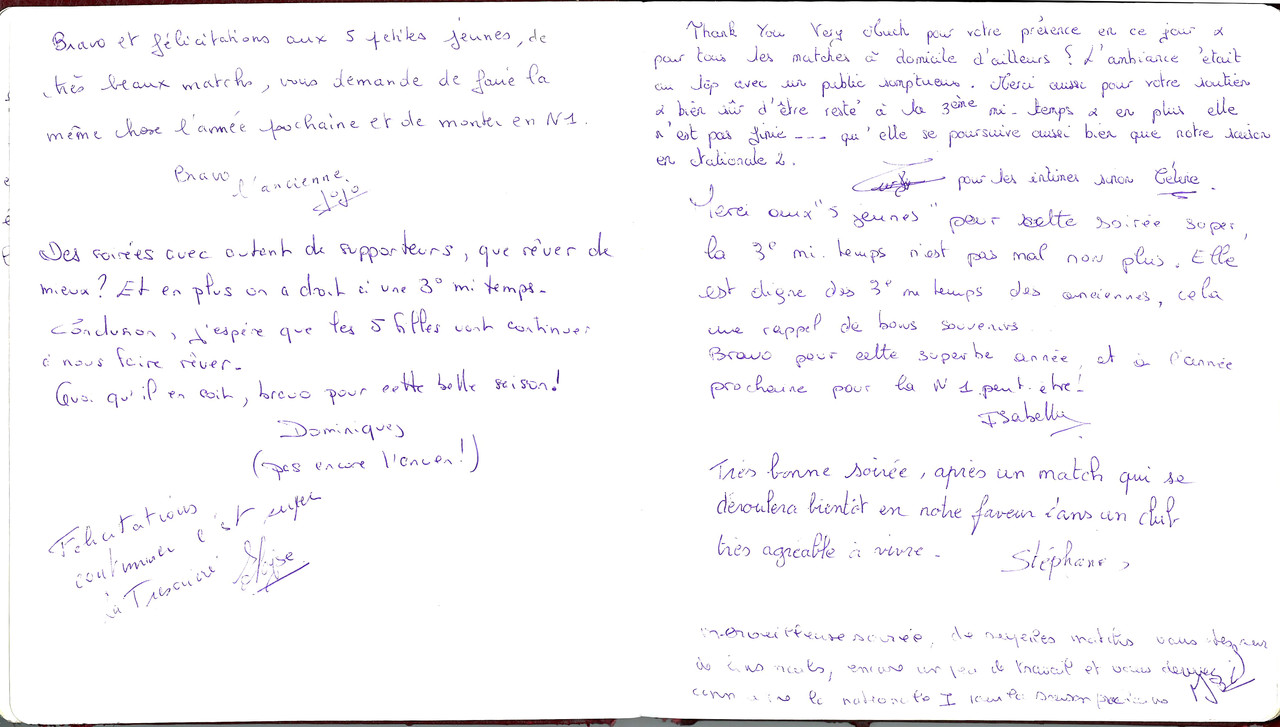 Bravo et félicitations aux 5 petites jeunes, de
très beaux matchs, vous demande de faire la
même chose l'année prochaine et de monter en N1.
Bravo l'ancienne.
Jojo
Des soirées avec autant de supporteurs, que rêver de
mieux ? Et en plus on a droit à une 3° mi temps.
Conclusion, j'espère que les 5 filles vont continuer
à nous faire rêver.
Quoi qu'il en soit, bravo pour cette belle saison !
Dominique
(pas encore l'ancien !)
Félicitations
continuer c'est super
à
Thank You Very Much pour votre présence en ce jour &
pour tous les matches à domicile d'ailleurs ! L'ambiance était
au top avec un public somptueux. Merci aussi pour votre soutien
& bien sûr d'être resté à la 3ème mi-temps & en plus elle
n'est pas finie --- qu'elle se poursuive aussi bien que notre saison
en Nationale 2.
pour les intimes sinon Céline.
Merci aux "5 jeunes" pour cette soirée super,
la 3e mi.temps n'est pas mal non plus. Elle
est digne des 3e mi temps des anciennes, cela
me rappel de bons souvenirs...
Bravo pour cette superbe année, et à l'année
prochaine pour la N1 peut.etre !
Isabelle
Très bonne soirée, après un match qui se
déroulera bientôt en notre faveur dans un club
très agréable à vivre.
Stéphane
merveilleuse soirée, de matchs vous
encore un peu de travail et vous devriez
la nationale I